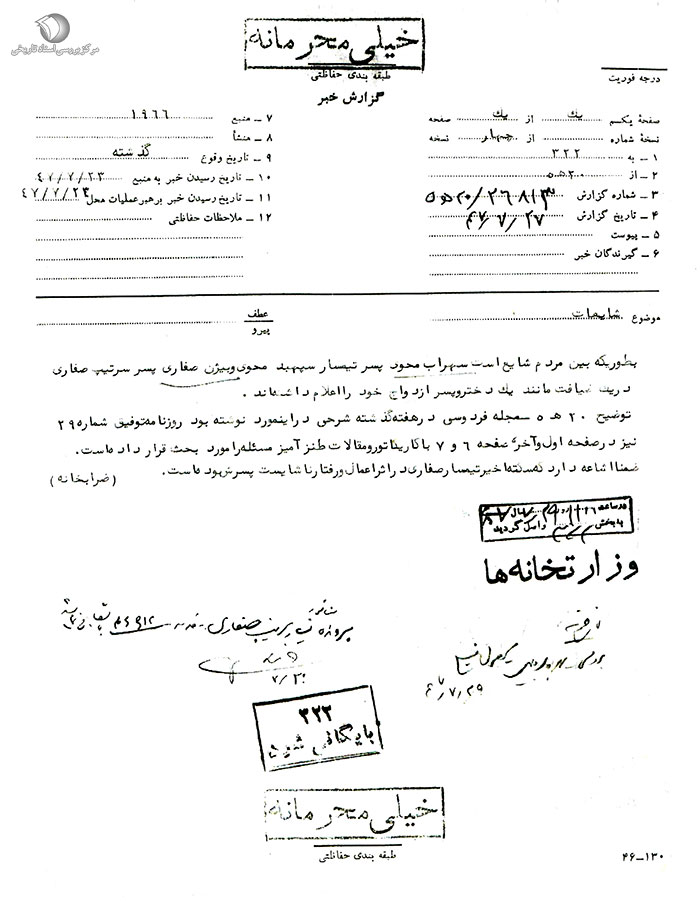 مرکز بررسی اسناد تاریخی
خیلی محرمانه
طبقه بندی حفاظتی
گزارش خبر
درجه فوریت
صفحه یکم یک از یک صفحه
نسخه شماره از چهار نسخه
۱ ـ به ۳۲۲
۲ ـ از ۲۰ ه ۵
۳ ـ شماره گزارش ۲۶۸۱۳/۲۰ ه ۵
۴ ـ تاریخ گزارش ۴۷/۷/۲۷
۵ ـ پیوست
۶ ـ گیرندگان خبر
۷ ـ منبع ۱۹۶۶
۸ ـ منشأ
۹ ـ تاریخ وقوع گذشته
۱۰ ـ تاریخ رسیدن خبر به منبع ۴۷/۷/۲۳
۱۱ ـ تاریخ رسیدن خبر برهبر عملیات محل ۴۷/۷/۲۴
۱۲ ـ ملاحظات حفاظتی
موضوع شایعات
عطف
پیرو
بطوریکه بین مردم شایع است سهراب محوی پسر تیمسار سپهبد محوی و بیژن صفاری پسر سرتیپ صفاری
در یک ضیافت مانند یک دختر و پسر ازدواج خود را اعلام داشته‌اند .
توضیح ۲۰ ه ۵ ـ مجله فردوسی در هفته گذشته شرحی در اینمورد نوشته بود روزنامه توفیق شماره ۲۹
نیز در صفحه اول و آخر و صفحه ۶ و ۷ با کاریکاتور و مقالات طنز آمیز مسئله را مورد بحث قرار داده است.
ضمنا اشاعه دارد که سکته اخیر تیمسار صفاری در اثر اعمال و رفتار ناشایست پسرش بوده است. (ضرابخانه)
در ساعت
به بخش ۳۲۲ واصل گردید
وزارتخانه ها
پرونده
۷/۳۰
۴۷/۷/۲۹
۳۲۲
بایگانی شود
خیلی محرمانه
طبقه بندی حفاظتی
۴۶-۱۳۰